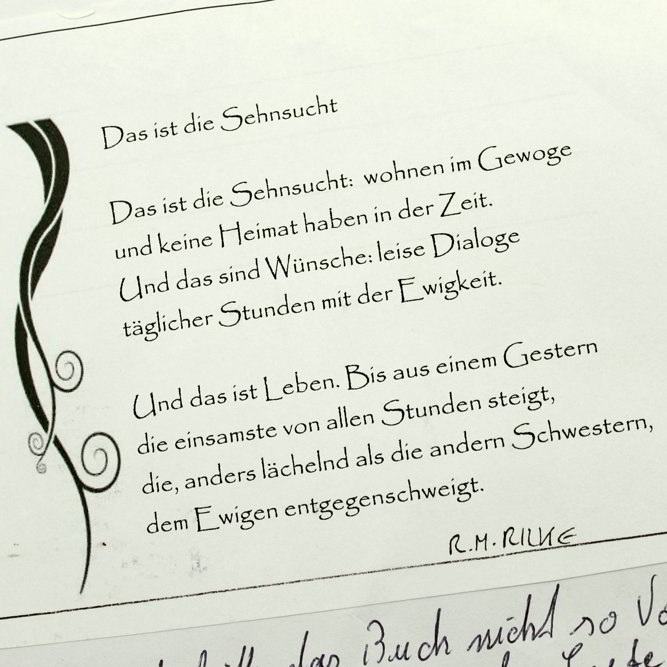 Das ist die Sehnsucht
Das ist die Sehnsucht: wohnen im Gewoge
und keine Heimat haben in der Zeit.
Und das sind Wünsche: leise Dialoge
täglicher Stunden mit der Ewigkeit.
Und das ist Leben. Bis aus einem Gestern
die einsamste von allen Stunden steigt,
die, anders lächelnd als die andern Schwestern,
dem Ewigen entgegenschweigt.
R.M.RILKE
das Buch nicht so